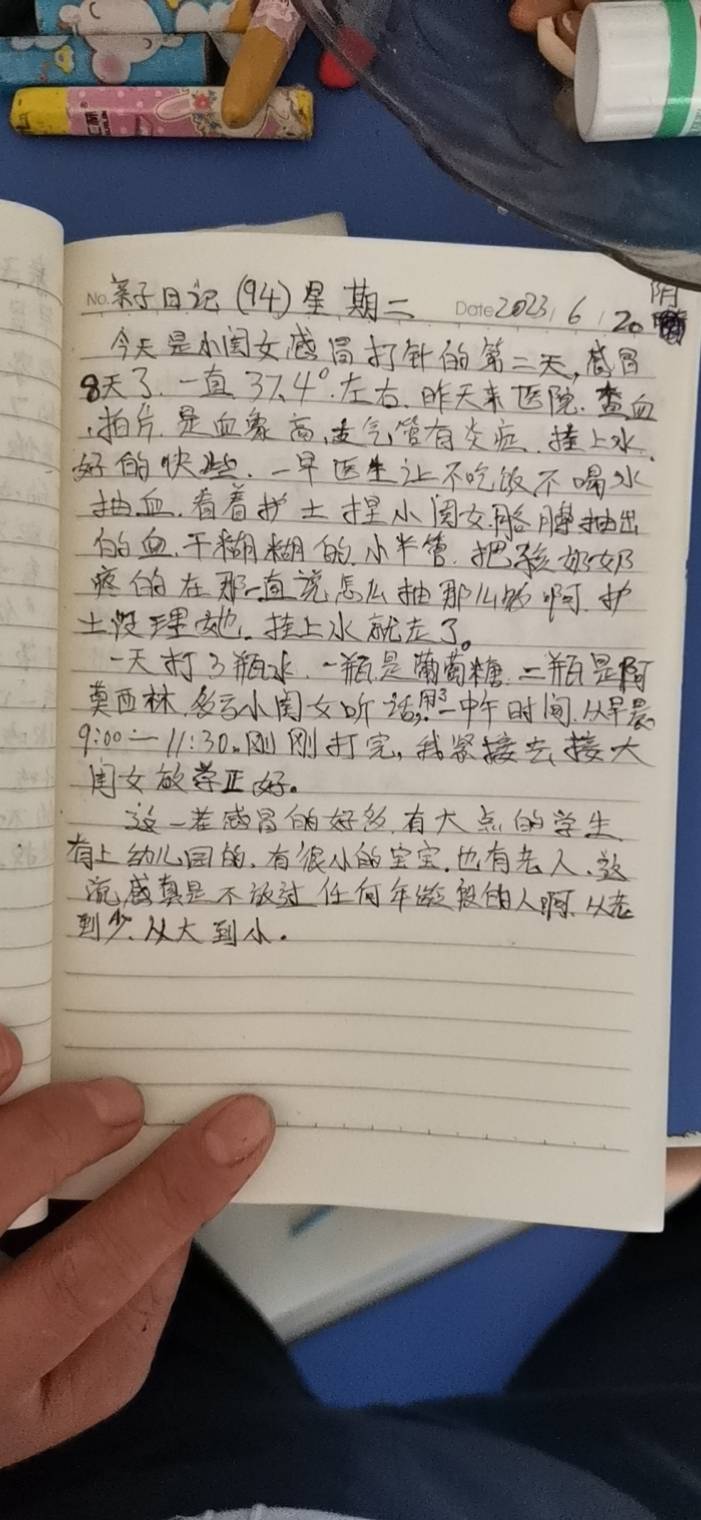 No. 亲子日记(94)星期二 Date 2023 / 6 / 20 阴
今天是小闺女感冒打针的第二天,感冒
8天了.一直37.4°.左右.昨天来医院.查血
.拍片.是血象高,支气管有炎症.挂上水.
好的快些.一早医生让不吃饭不喝水
抽血.看着护士捏小闺女胳膊抽出
的血.干糊糊的.小半管.把孩奶奶
疼的在那一直说怎么抽那么多啊.护
士没理她.挂上水就走了。
一天打3瓶水.一瓶是葡萄糖.二瓶是阿
莫西林.多亏小闺女听话,用了一中午时间.从早晨
9:00—11:30。刚刚打完,我紧接去接大
闺女放学正好。
这一茬感冒的好多.有大点的学生
有上幼儿园的.有很小的宝宝.也有老人.这
流感真是不放过任何年龄段的人啊.从老
到少.从大到小.